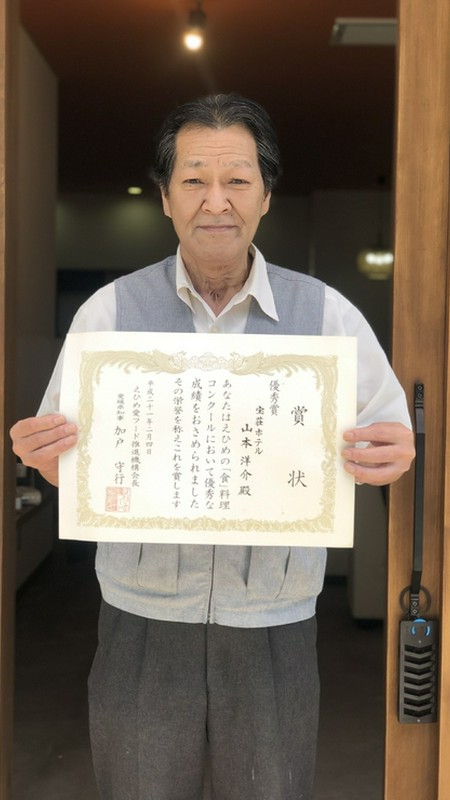 賞状
優秀賞
宝荘ホテル
山本洋介殿
あなたはえひめの「食」料理
コンクールにおいて優秀な
成績をおさめられました
その栄誉を称えこれを賞します
平成二十一年二月四日
えひめ愛フード推進機構会長
愛媛県知事 加戸守行